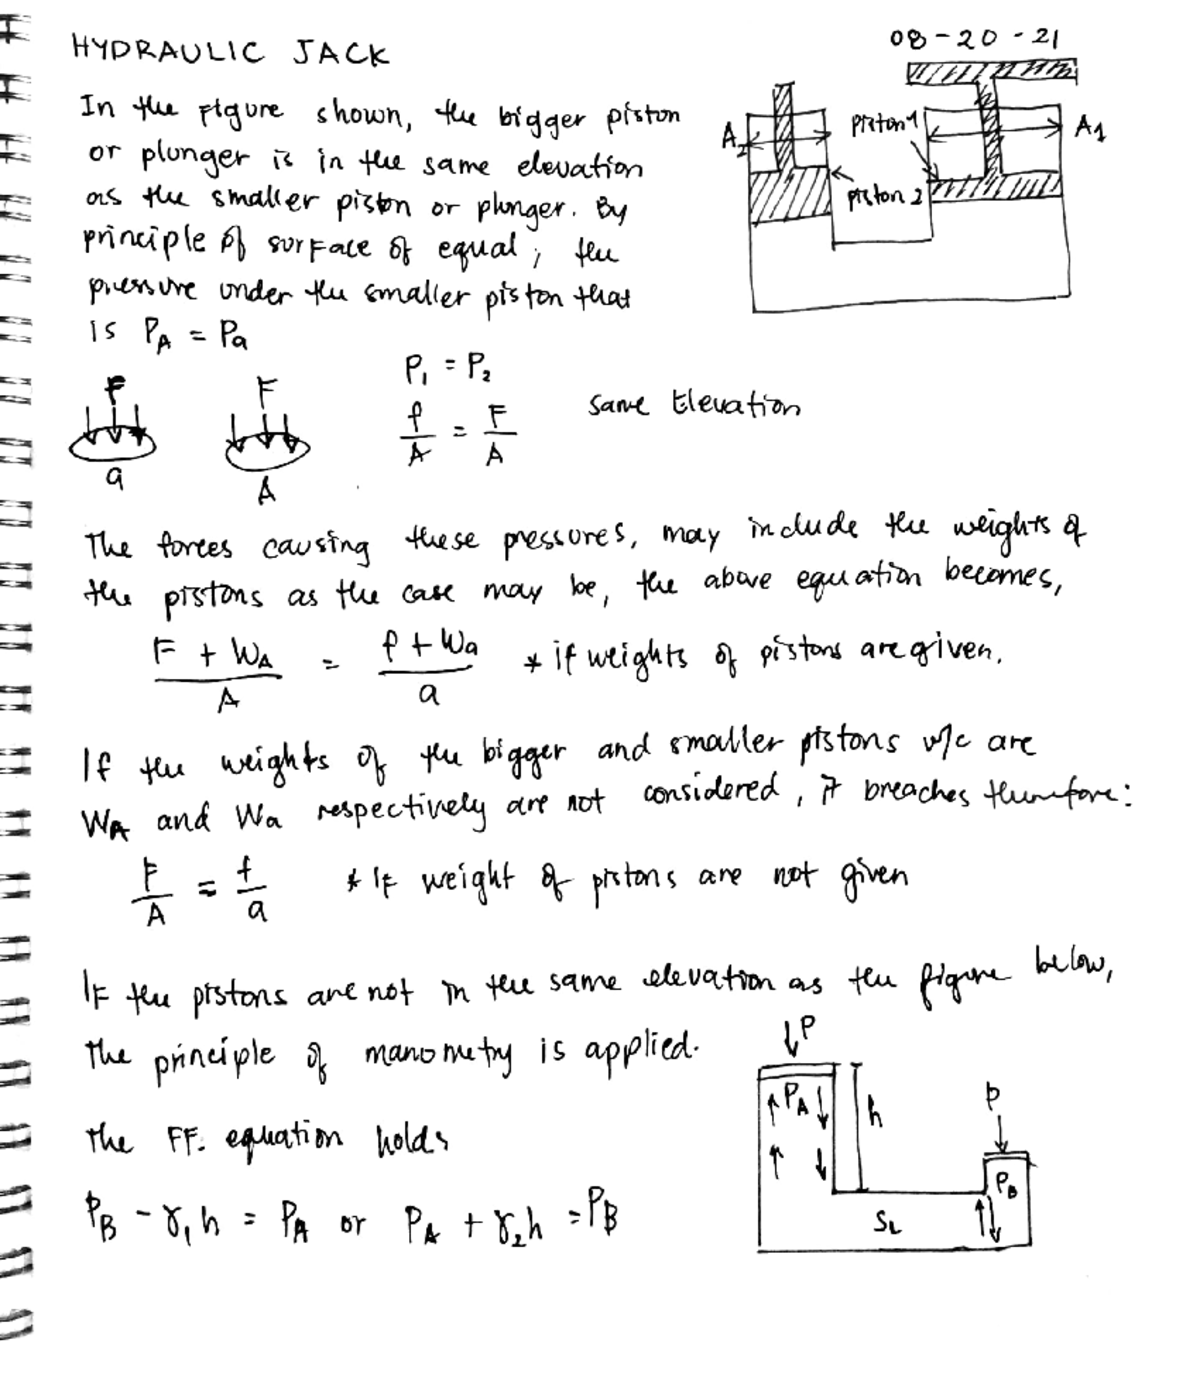 HYDRAULIC JACK
08-20-21
In the figure shown, the bigger piston
or plunger is in the same elevation
as the smaller piston or plunger. By
principle of surface of equal; the
pressure under the smaller piston that
is P_A = Pa
A₂
piston 1
A₁
piston 2
F
a
F
A
P₁ = P₂
f/A = F/A
same Elevation
The forces causing these pressures, may include the weights of
the pistons as the case may be, the above equation becomes,
F + W_A / A = f + Wa / a * if weights of pistons are given.
If the weights of the bigger and smaller pistons w/c are
W_A and Wa respectively are not considered, it breaches therefore:
F/A = f/a * If weight of pistons are not given
If the pistons are not in the same elevation as the figure below,
the principle of manometry is applied.
The FF. equation holds
P_B - γ₁h = P_A or P_A + γ₂h = P_B
P
P_A
h
P
P_B